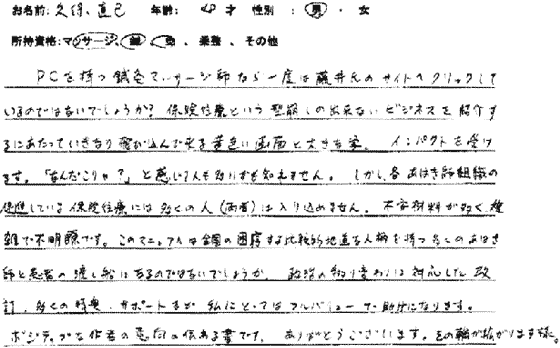 お名前: 久保 直己 年齢: 48才 性別 : 男 ・ 女
所持資格: マッサージ、鍼、灸、柔整、その他
PCを持つ鍼灸マッサージ師なら一度は藤井氏のサイトへクリックして
いるのではないでしょうか? 保険治療という型崩しの出来ないビジネスを紹介す
るにあたっていきなり飛び込んで来る黄色い画面と大きな字、インパクトを受け
ます。「なんだこりゃ?」と感じる人も多いかも知れません。しかし各あはき師組織の
している保険治療には多くの人(両者)は入り込めません。不安材料が多く複
雑で不明瞭です。このマニュアルは全国の困窮する比較的地道な人柄を持つ多くのあはき
師と患者の渡し船になるのではないでしょうか。政治の切り変わりに対応した改
訂、多くの特典・サポートなど私にとってはフルバリューで助けになります。
ポジティブな作者の意向の伝わる書です。ありがとうございます。その輪が拡がります様。